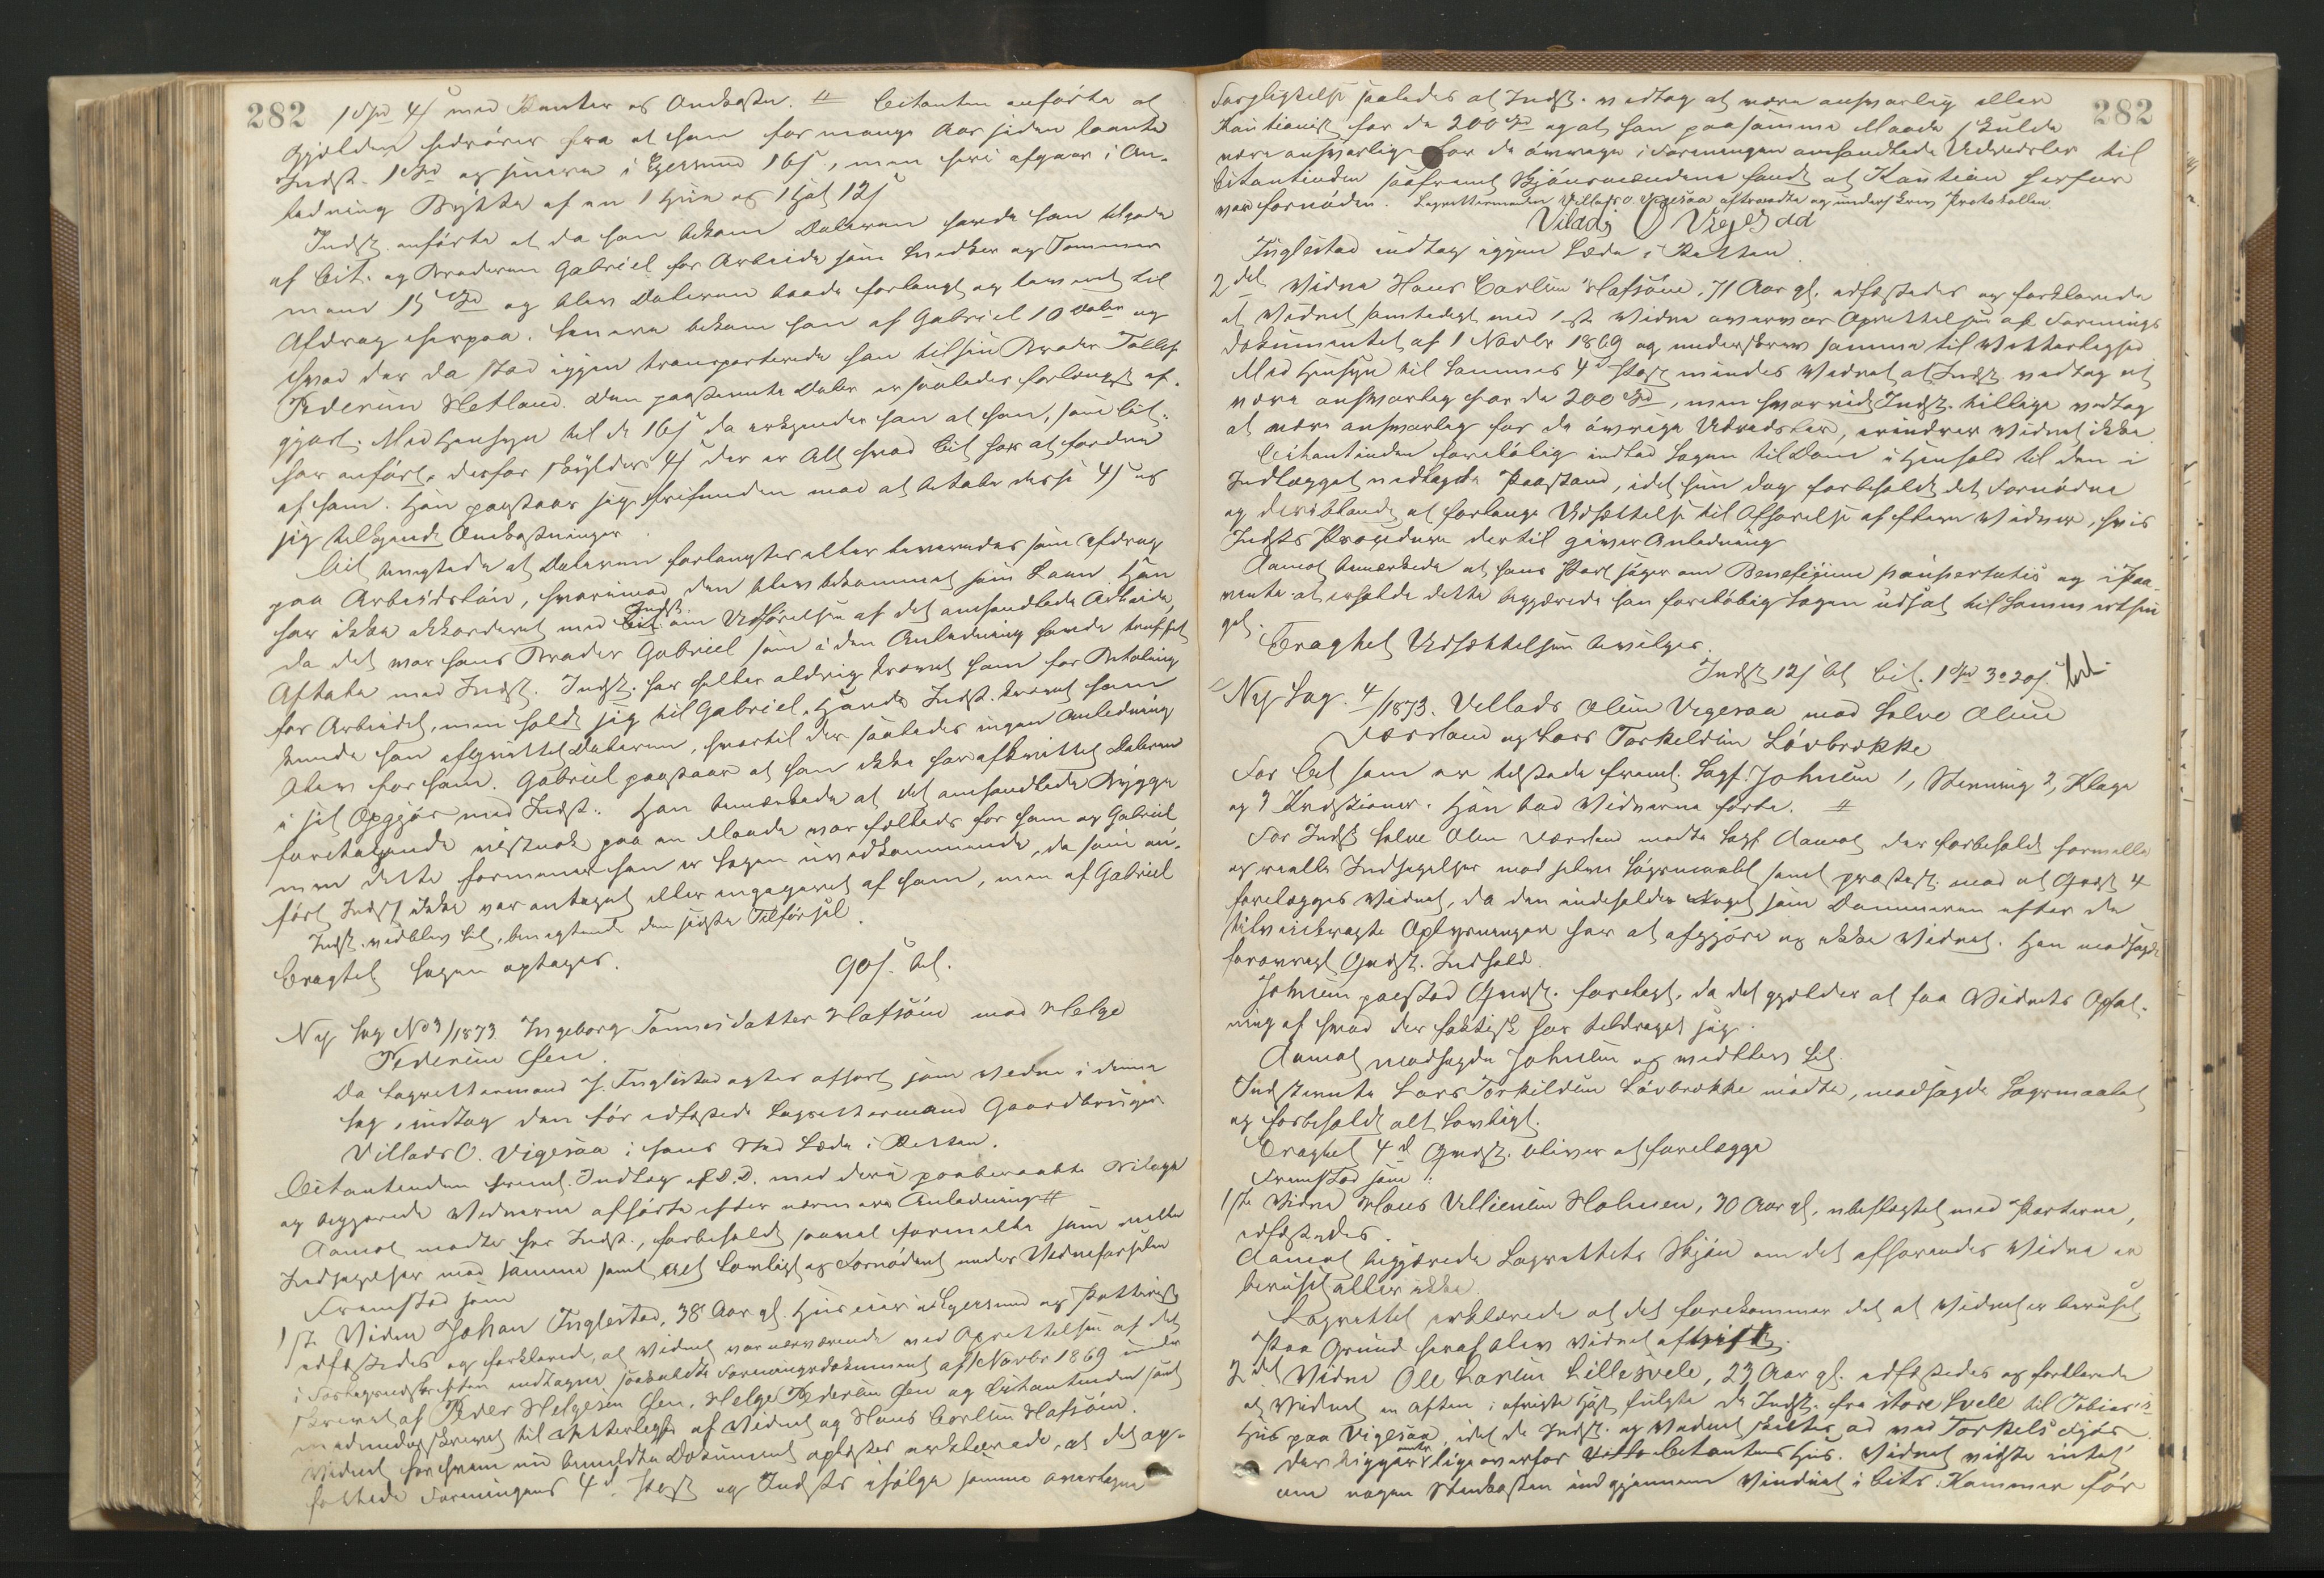 282
1 Spd 4 s med Renter og Omkostn. # Citanten anførte at
Gjælden hidrører fra at han for mange Aar siden laante
Indst. 1 Spd og senere i Egersund 16 s, men heri afgaar i An-
ledning Bytte af en 1 Hue og 1 Hat 12 s
Indst. anførte at da han bekom Daleren havde han tilgode
af Cit. og Broderen Gabriel for Arbeide som Snedker og Tømmer
mand 15 Spd og blev Daleren baade forlangt og leveret til
Afdrag herpaa. Senere bekom han af Gabriel 10 Daler og
hvad der da stod igjen transporterede han til sin Broder Tollef
Pedersen Hetland. Den paastevnte Daler er saaledes forlængst af-
gjort. Med Hensyn til de 16 s da erkjender han at han, som Cit.
har anført, derfor skylder 4 s der er Alt hvad Cit. har at fordre
af ham. Han paastaar sig frifunden mod at betale disse 4 s og
sig tilkjendt Omkostninger.
Cit. benegtede at Daleren forlangtes eller leveredes som Afdrag
paa Arbeidsløn, hvorimod den blev bekommet som Laan. Han
har ikke akkorderet med Indst. om Udførelsen af det omhandlede Arbeide,
da det var hans Broder Gabriel som i den Anledning havde truffet
Aftale med Indst. Indst. har heller aldrig krævet ham for Betaling
for Arbeidet, men holdt sig til Gabriel. Havde Indst. krævet ham
kunde han afqvittet Daleren, hvortil der saaledes ingen Anledning
blev for ham. Gabriel paastaar at han ikke har afkvittet Daleren
i sit Opgjør med Indst. Han bemærkede at det omhandlede Bygge
foretagende vistnok paa en Maade var fælleds for ham og Gabriel
men dette formener han er Sagen uvedkommende, da som an-
ført Indst. ikke var antaget eller engageret af ham, men af Gabriel
Indst. vedblev Sit, benegtende den sidste Tilførsel.
Eragtet Sagen optages. 90 s. bet.
Ny Sag No 3/1873 Ingeborg Tønnesdatter Hafsøen mod Helge
Pedersen Øen.
Da Lagrettemand J. Tuglestad agtes afhørt som Vidne i denne
Sag, indtog den før edfæstede Lagrettemand Gaardbruger
Villads O. Vigesaa i hans Sted Sæde i Retten.
Citantinden freml. Indlæg af D.D. med deri paaberaabte Bilage
og begjærede Vidnerne afhørte efter nærmere Anledning #
Aamot mødte for Indst., forbeholdt saavel formelle som reelle
Indsigelser mod samme samt alt Lovligt og Fornødent under Vidneførselen
Fremstod som
1ste Vidne Johan Tuglestad, 38 Aar gl. Huseier i Egersund og
edfæstedes og forklarede, at Vidnet var nærværende ved Oprettelsen af det
i Forligsudskriften indtagne saakaldte Foreningsdokument af 1 Novbr 1869 under
skrevet af Peder Helgesen Øen, Helge Pedersen Øen og Citantinden samt
medunderskrevet til Vitterlighed af Vidnet og Hans Carlsen Hafsøen.
Vidnet for hvem nu bemeldte Dokument oplæstes erklærede, at det op-
fattede Foreningens 4d. Post og Indsts ifølge samme overtagne
282
Forpligtelse saaledes at Indst. vedtog at være ansvarlig eller
Kautionist for de 200 Spd og at han paa samme Maade skulde
være ansvarlig for de øvrige i Foreningen omhandlede Udredsler til
Citantinden saafremt Skjønsmændene fandt at Kaution herfor
var fornøden. Lagrettemanden Villads O. Vigesaa aftraadte og underskrev Protokollen.
Vilads O Vigesaa
Tuglestad indtog igjen Sæde i Retten.
2det Vidne Hans Carlsen Hafsøen, 71 Aar gl. edfæstedes og forklarede
at Vidnet samtidigt med 1ste Vidne overvar Oprettelsen af Forenings
dokumentet af 1 Novbr 1869 og underskrev samme til Vitterlighed
Med Hensyn til Sammes 4d Post mindes Vidnet at Indst. vedtog at
være ansvarlig for de 200 Spd, men hvorvidt Indst. tillige vedtog
at være ansvarlig for de øvrige Udredsler, erindrer Vidnet ikke
Citantinden foreløbig indlod Sagen til Dom i Henhold til den i
Indlægget nedlagte Paastand, idet hun dog forbeholdt det Fornødne
og deriblandt at forlange Udsættelse til Afhørelse af flere Vidner, hvis
Indsts Procedure dertil giver Anledning
Aamot bemærkede at hans Part søger om Beneficium paupertatis og i Paa
vente at erholde dette begjærede han foreløbig Sagen udsat til Sommertin
get.
Eragtet Udsættelsen bevilges.
Indst 12 s bt Cit. 1 Spd 3 o 20 s. bet.
Ny Sag. 4/1873. Villads Olsen Vegesaa mod Salve Olsen
Værsland og Lars Torkeldsen Løvbrekke
For Cit som var tilstede freml. Sagf. Johnsen 1, Stevning 2, Klage
og 3 Qvæstioner. Han bad Vidnerne førte. #
For Indst Salve Olsen Værsland mødte Sagf Aamot der forbeholdt formelle
og reelle Indsigelser mod selve Søgsmaalet samt protest. mod at Qvæst 4
forelægges Vidnet, da den indeholder Noget som Dommeren efter de
tilveiebragte Oplysninger har at afgjøre og ikke Vidnet. Han modsagde
forøvrigt Qvæst. Indhold.
Johnsen paastod Qvæst. forelagt, da det gjælder at faa Vidnets Opfat-
ning af hvad der faktisk har tildraget sig.
Aamot modsagde Johnsen og vedblev Sit.
Indstevnte Lars Torkildsen Løvbrække mødte, modsagde Søgsmaalet
og forbeholdt alt Lovligt.
Eragtet 4d Qvæst. bliver at forelægge
Fremstod som:
1ste Vidne Hans Villiemsen Holmen, 30 Aar gl, ubeslægtet med Parterne,
edfæstedes.
Aamot begjærede Lagrettets Skjøn om det afhørendes Vidne er
beruset eller ikke
Lagrettet erklærede at det forekommer det at Vidnet er beruset
Paa Grund heraf blev Vidnet afvist.
2det Vidne Ole Larsen Lillesvele, 23 Aar gl. edfæstedes og forklarede
at Vidnet en Aften i afvigte Høst fulgte de Indst. fra Store Svele til Tobias's
Huus paa Vigesaa, idet de Indst. og Vidnet skiltes ad ved Torkels
der ligger lige overfor Citantens Huus. Vidnet vidste intet
om nogen Stenkasten ind gjennem Vinduet i Cits. Kammer før